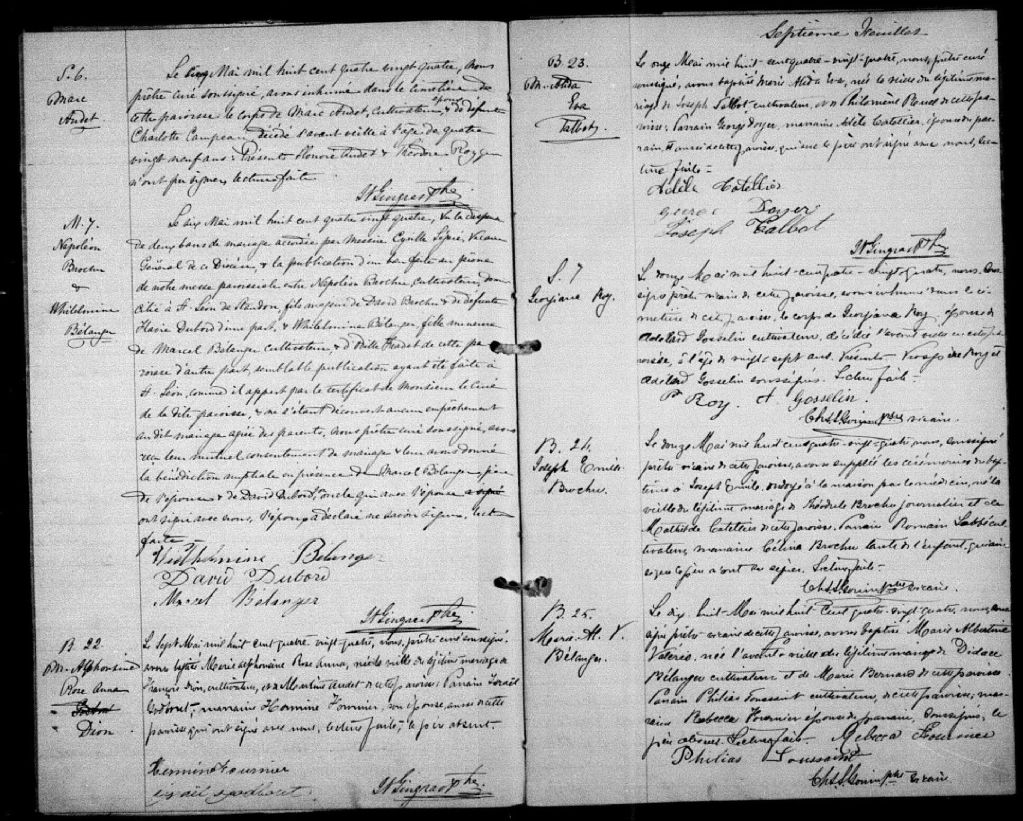 S. 6.
Marc
Audet.
Le cinq Mai mil huit cent quatre vingt quatre, nous
prêtre curé soussigné, avons inhumé dans le cimetière de
cette paroisse le corps de Marc Audet, cultivateur, époux de défunte
Charlotte Campeau, décédé l'avant veille à l'âge de quatre
vingt neuf ans: Présents Honoré Audet & Théodore Roy qui
n'ont pu signer, lecture faite.
N Gingras Ptre
M. 7
Napoléon
Brochu
&
Whilelmine
Bélanger
Le six Mai mil huit cent quatre vingt quatre, Vu la dispense
de deux bans de mariage accordée par Messire Cyrille Vicaire
Général de ce Diocèse, & la publication d'un ban faite au prône
de notre messe paroissiale entre Napoléon Brochu cultivateur, domi-
cilié à St Léon de Standon, fils majeur de David Brochu & de défunte
Flavie Dubord d'une part, & Whilelmine Bélanger, fille mineure
de Marcel Bélanger cultivateur, & d' Nadet de cette pa-
roisse d'autre part, semblable publication ayant été faite à
St Léon, comme il appert par le certificat de Monsieur le Curé
de la dite paroisse, & ne s'étant découvert aucun empêchement
au dit mariage, des parents, nous prêtre curé soussigné, avons
reçu leur mutuel consentement de mariage & leur avons donné
la bénédiction nuptiale en présence de Marcel Bélanger, père
de l'épouse & de David Dubord, oncle qui avec l'épouse
ont signé avec nous, l'époux a déclaré ne savoir signer, lecture
faite.
Wilhelmine Bélanger
David Dubord
Marcel Bélanger
N Gingras Ptre
B. 22
M. Alphonsine
Rose Anna
Dion
Le sept Mai mil huit cent quatre vingt-quatre, nous, prêtre curé soussigné
avons baptisé Marie Alphonsine Rose Anna, née la veille du légitime mariage de
François Dion, cultivateur, et de Audet de cette paroisse: Parrain Israël
Godbout, marraine Hermine Fournier, son épouse, aussi de cette
paroisse qui ont signé avec nous, lecture faite, le père absent.
Hermine Fournier
Israël Godbout
N Gingras Ptre
Septième Feuillet
B. 23.
M. Alida
Eva
Talbot.
Le onze Mai mil huit-cent-quatre-vingt-quatre, nous, prêtre curé
soussigné, avons baptisé Marie Alida Eva, née la veille du légitime ma-
riage de Joseph Talbot cultivateur, et de Philomène de cette pa-
roisse: Parrain George Doyer, marraine Adèle Catellier, épouse du par-
rain, aussi de cette paroisse, qui avec le père ont signé avec nous, lec-
ture faite.
Adèle Catellier
George Doyer
Joseph Talbot
N Gingras Ptre
S. 7
Georgiana Roy.
Le douze Mai mil huit-cent-quatre-vingt-quatre, nous, sous-
signé prêtre vicaire de cette paroisse, avons inhumé dans le ci-
metière de cette paroisse, le corps de Georgiana Roy, épouse de
Adélard Gosselin cultivateur, décédée l'avant veille en cette pa-
roisse, à l'âge de vingt-sept ans. Présents Roy et
Adélard Gosselin soussignés. Lecture faite.
P Roy. A Gosselin.
Chs. Ptre vicaire.
B. 24.
Joseph Emile
Brochu.
Le douze Mai mil huit-cent-quatre-vingt-quatre, nous, soussigné
prêtre vicaire de cette paroisse, avons suppléé les cérémonies du bap-
tême à Joseph Emile, ondoyé à la maison par le médecin, né la
veille du légitime mariage de Théodule Brochu journalier et de
Mathilde Catellier de cette paroisse. Parrain Romain cul-
tivateur, marraine Célina Brochu tante de l'enfant, qui ainsi
que le père n'ont su signer. Lecture faite.
Chs. Ptre vicaire.
B. 25.
Marie-A. V.
Bélanger.
Le dix-huit Mai mil huit-cent-quatre-vingt-quatre, nous, sous-
signé prêtre vicaire de cette paroisse, avons baptisé Marie Albertine
Valérie, née l'avant-veille du légitime mariage de Didace
Bélanger cultivateur et de Marie Bernard de cette paroisse.
Parrain Philias Toussaint cultivateur, de cette paroisse; mar-
raine Rebecca Fournier épouse du parrain, soussignés, le
père absent. Lecture faite. Rebecca Fournier
Philias Toussaint
Chs. Ptre vicaire